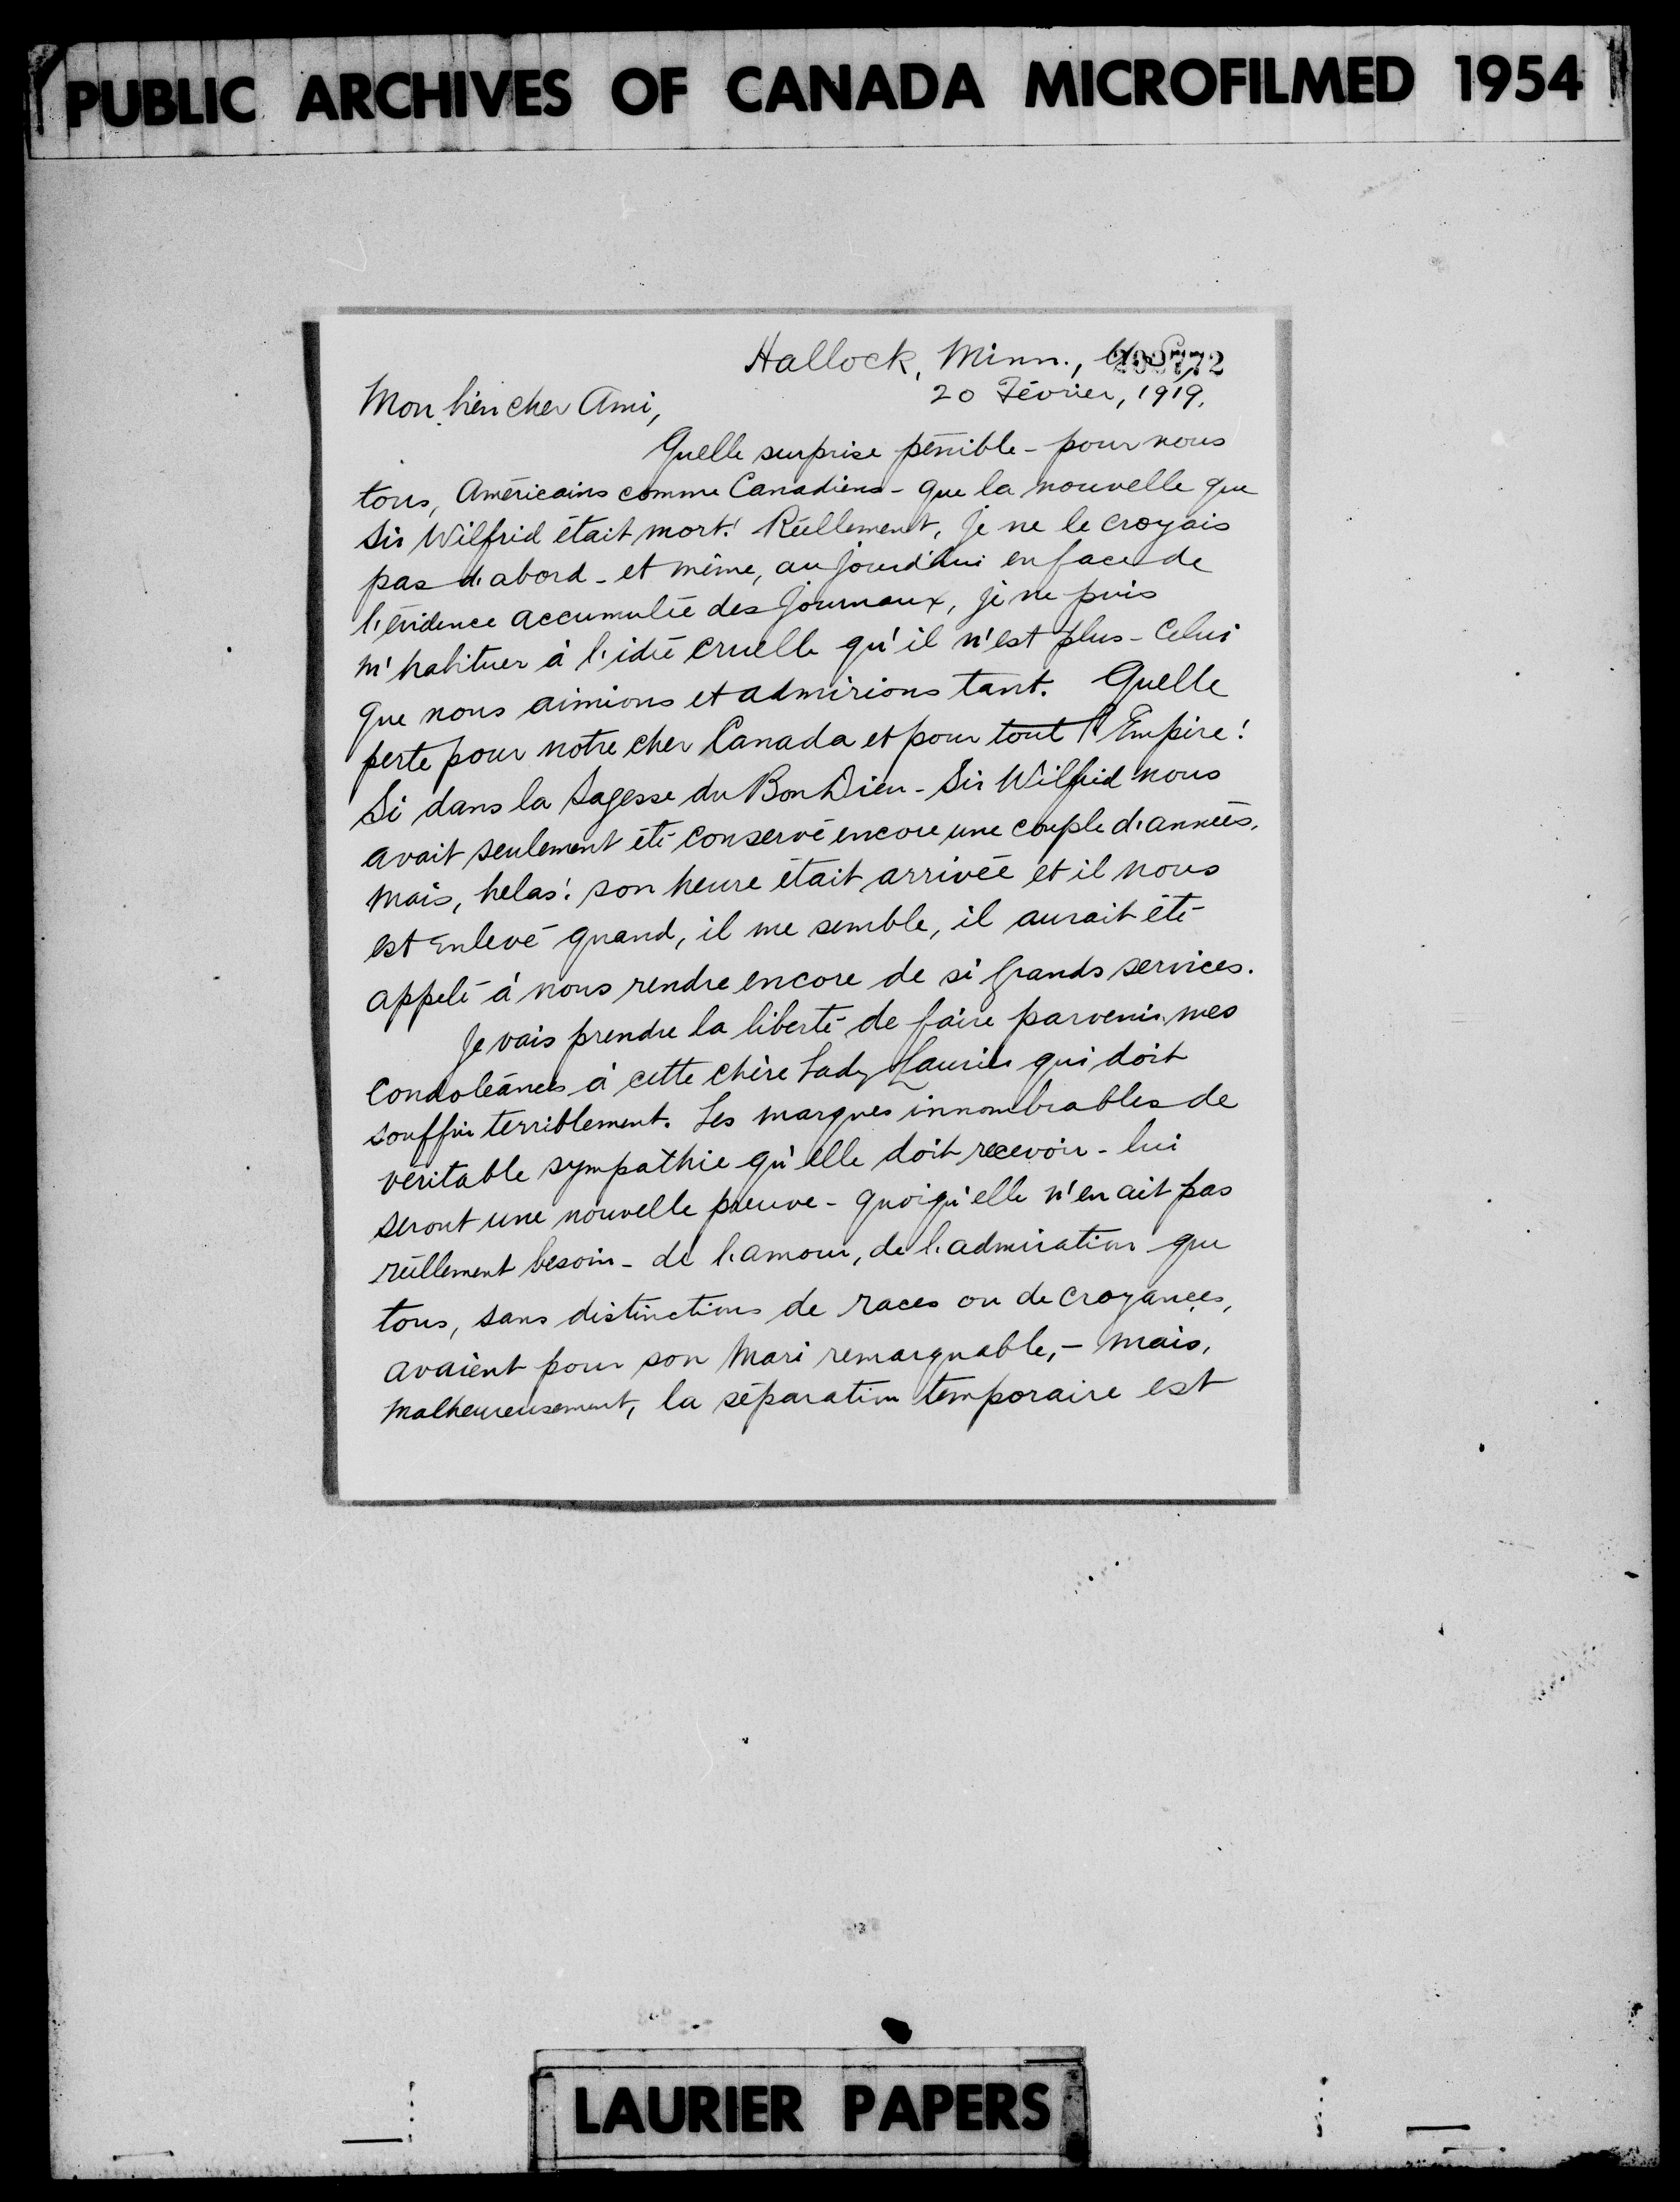 PUBLIC ARCHIVES OF CANADA MICROFILMED 1954
Hallock, Minn., U.S.
20 Février, 1919.
Mon bien cher Ami,
Quelle surprise pénible - pour nous
tous, Américains comme Canadiens - que la nouvelle que
Sir Wilfrid était mort! Réellement, je ne le croyais
pas d'abord - et même, aujourd'hui en face de
l'évidence accumulée des journaux, je ne puis
m'habituer à l'idée cruelle qu'il n'est plus - Celui
que nous aimions et admirions tant. Quelle
perte pour notre cher Canada et pour tout l'Empire!
Si dans la Sagesse du Bon Dieu - Sir Wilfrid nous
avait seulement été conservé encore une couple d'années,
mais, helas! son heure était arrivée et il nous
est enlevé quand, il me semble, il aurait été
appelé à nous rendre encore de si grands services.
Je vais prendre la liberté de faire parvenir mes
Condoléances à cette chère Lady Laurier qui doit
souffrir terriblement. Les marques innombrables de
véritable sympathie qu'elle doit recevoir - lui
seront une nouvelle preuve - quoiqu'elle n'en ait pas
réellement besoin - de l'amour, de l'admiration que
tous, sans distinctions de races ou de croyances,
avaient pour son Mari remarquable, - mais,
malheureusement, la séparation temporaire est
LAURIER PAPERS